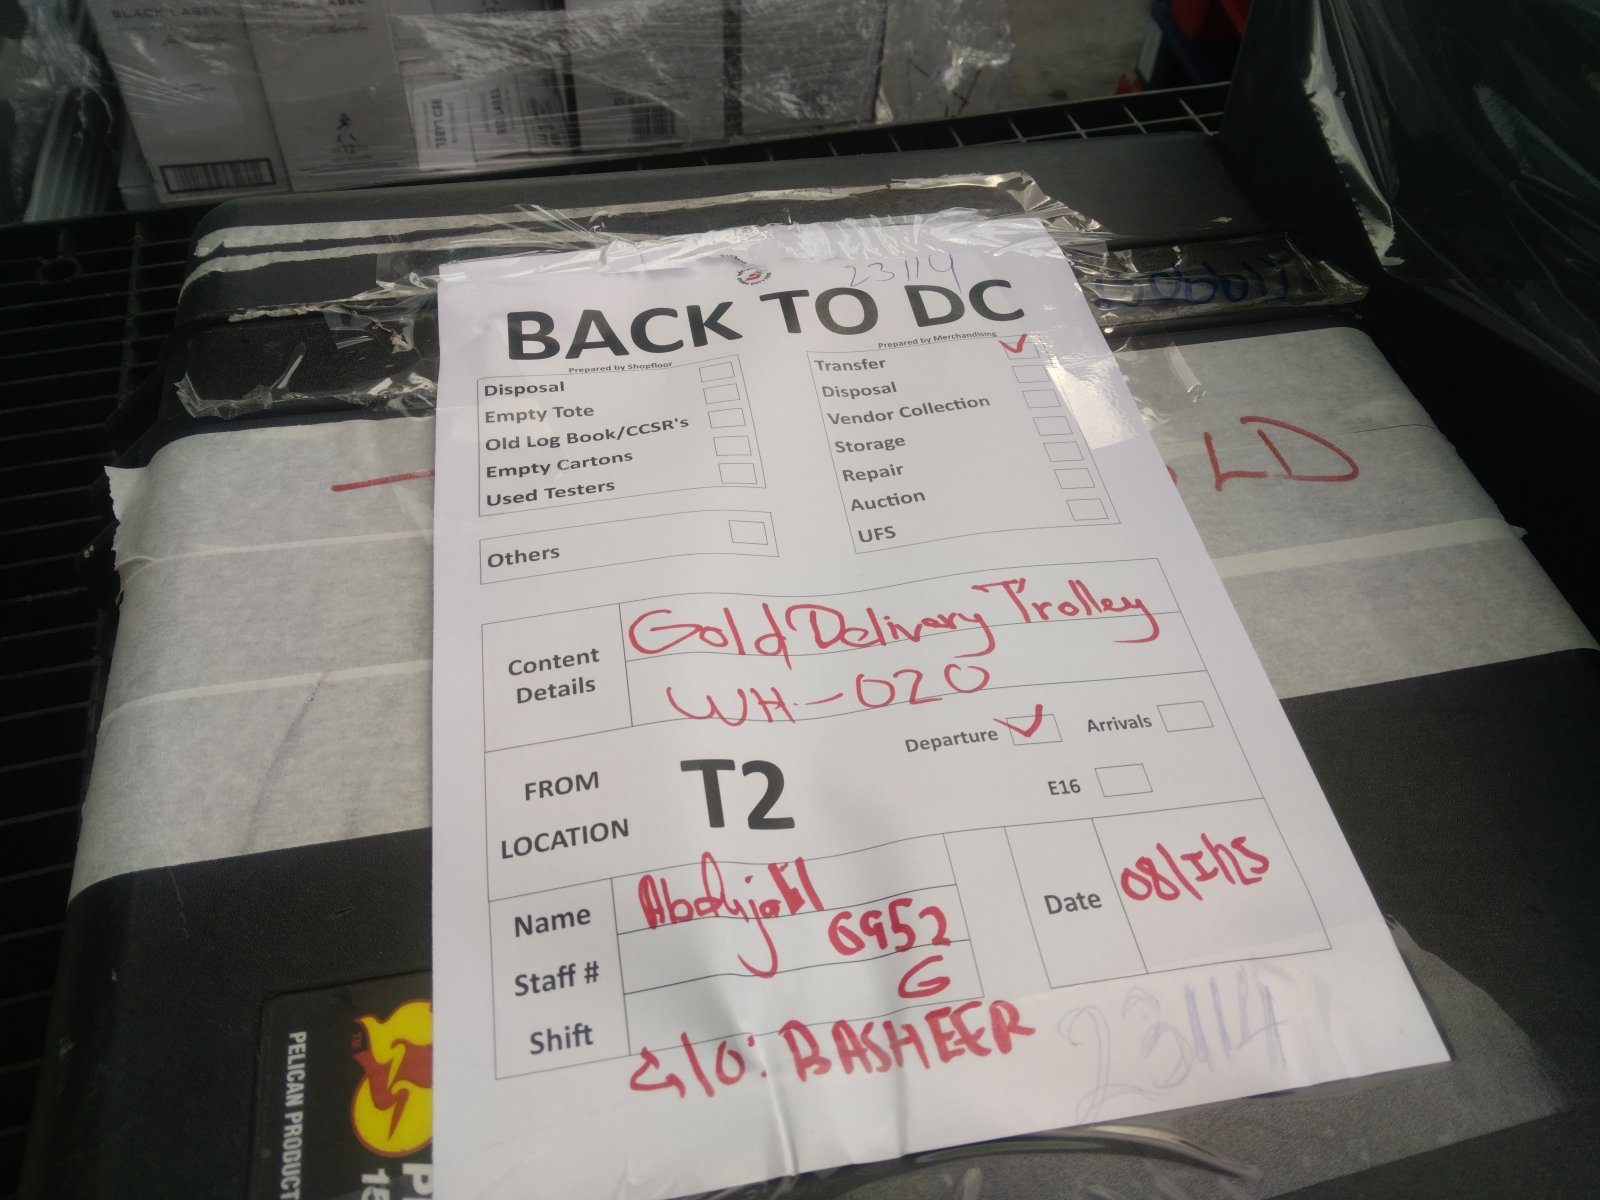 BLACK LABEL
BLACK LABEL
12
RED LABEL
RED LABEL
23114
BACK TO DC
Prepared by Shopfloor
Disposal
Empty Tote
Old Log Book/CCSR's
Empty Cartons
Used Testers
Others
Prepared by Merchandising
Transfer
Disposal
Vendor Collection
Storage
Repair
Auction
UFS
LD
Content Details
Gold Delivery Trolley
WH-020
FROM LOCATION
T2
Departure
Arrivals
E16
Name
Staff #
6952
Shift
G
Date
C/O: BASHEER
23114
PELICAN PRODUCT
TM